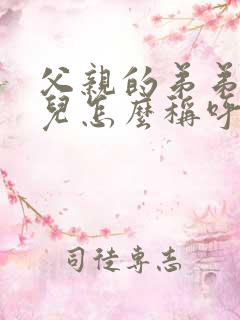 父親的弟弟
兒怎麼稱呼
司徒專志